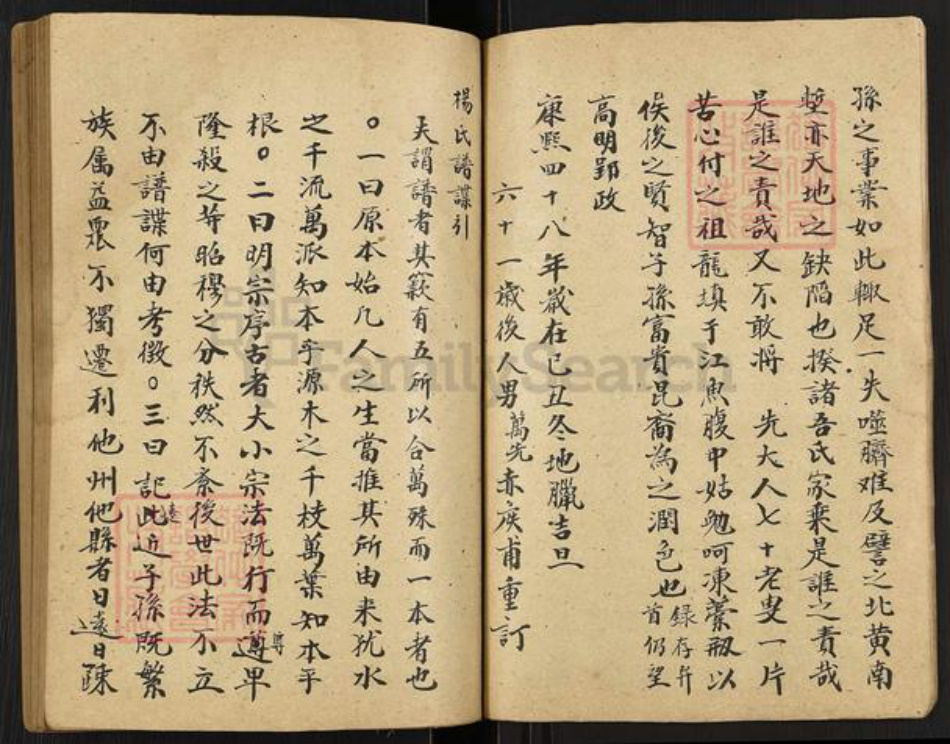 孫之事業如此輙足一失噬臍难及譬之北黄南
埑亦天地之缺陷也揆諸吾氏家乗是誰之責哉
是誰之責哉又不敢將 先大人七十老叟一片
苦心付之祖龍填于江魚腹中姑勉呵凍藁剏以
俟後之賢智子孫富貴昆裔為之潤色也
録存弁
首仍望
高明郢政
康熙四十八年歲在己丑冬地臘吉旦
六十一歲後人男萬先赤侯甫重訂
楊氏譜諜引
夫謂譜者其欵有五所以合萬殊而一本者也
○一曰原本始凡人之生當推其所由来犹水
之千流萬派知本乎源木之千枝萬葉知本乎
根○二曰明宗序古者大小宗法既行而遵卑
尊
隆殺之等昭穆之分秩然不紊後世此法不立
不由譜諜何由考徵○三曰記此近子孫既繁
遠
族属益衆不獨遷利他州他縣者日遠日踈
FamilySearch